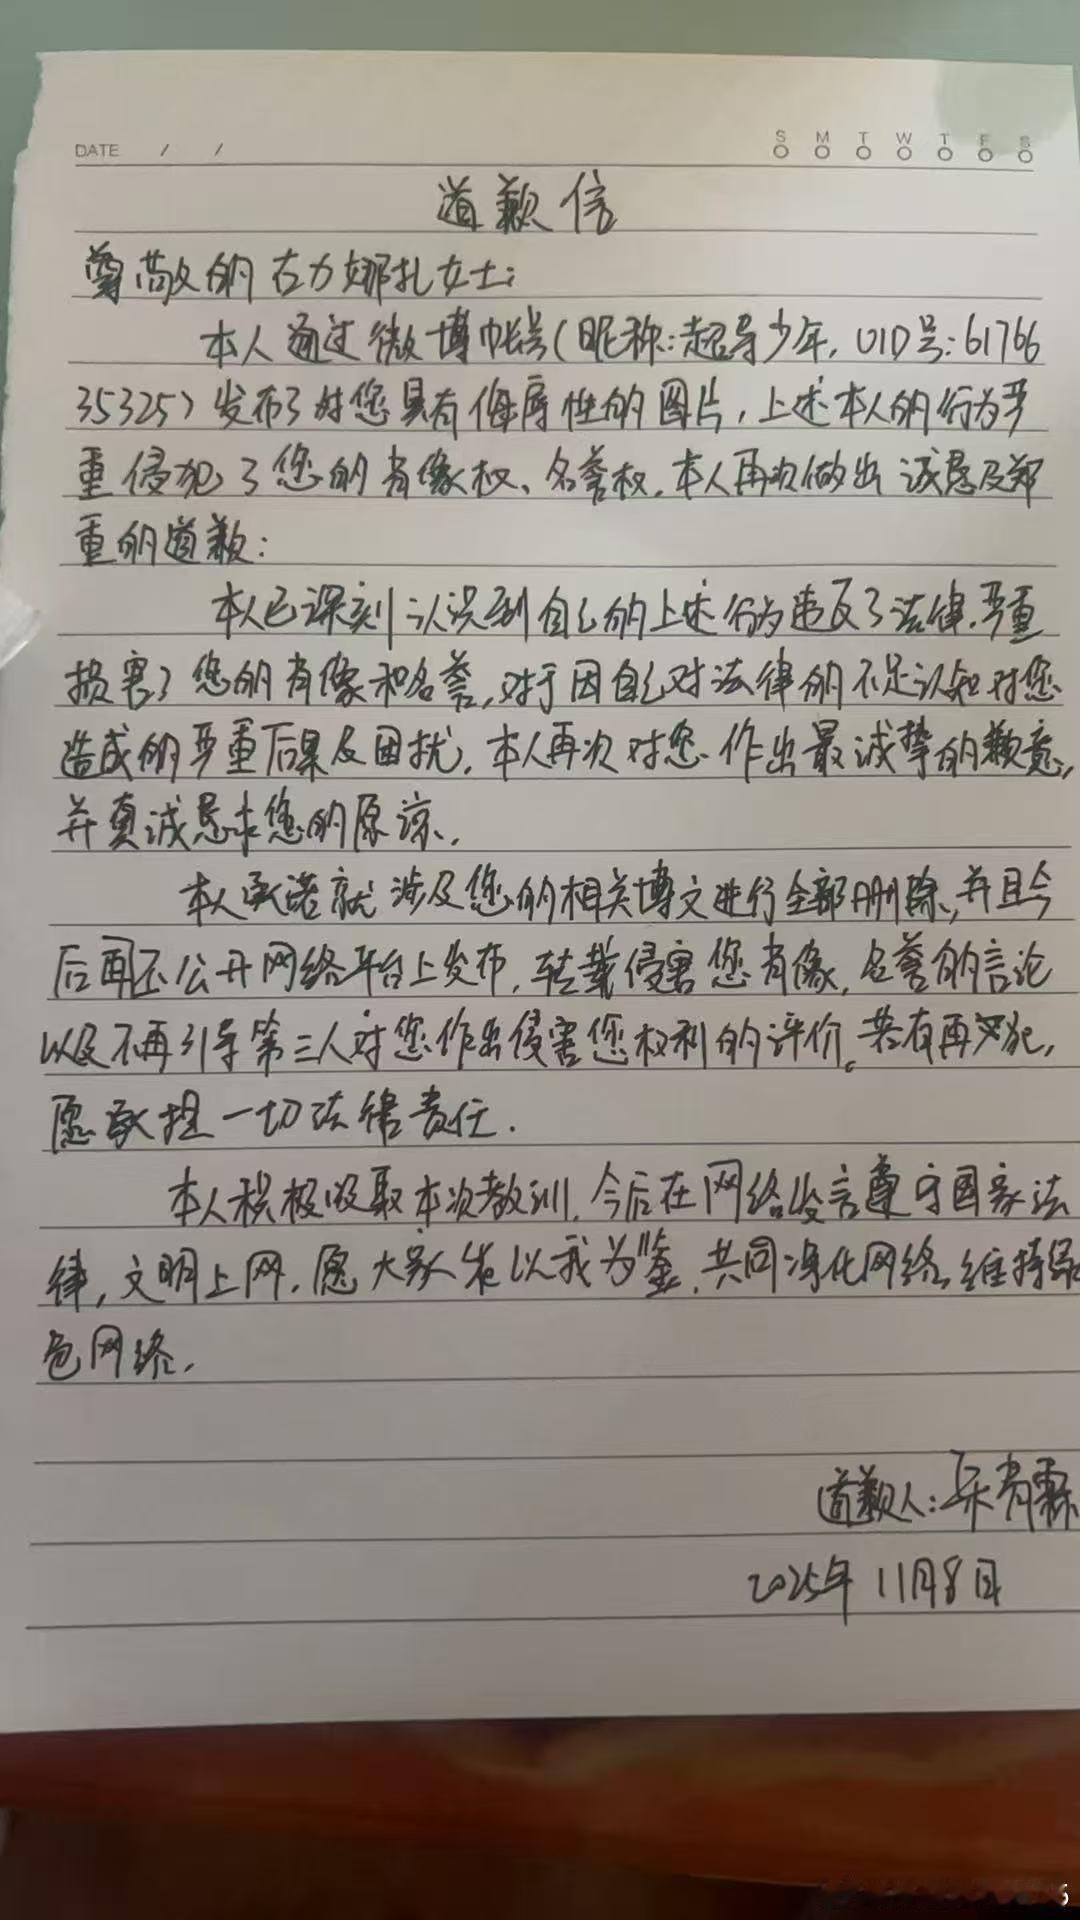 DATE / /
S M T W T F S
道歉信
尊敬的古力娜扎女士:
本人通过微博帐号(昵称:超导少年,UID号:61766
35325)发布了对您具有侮辱性的图片,上述本人的行为严
重侵犯了您的肖像权、名誉权,本人再次做出诚恳及郑
重的道歉:
本人已深刻认识到自己的上述行为违反了法律,严重
损害了您的肖像和名誉,对于因自己对法律的不足认知对您
造成的严重后果及困扰,本人再次对您作出最诚挚的歉意,
并真诚恳求您的原谅.
本人承诺就涉及您的相关博文进行全部删除,并且今
后再不公开网络平台上发布,转载侵害您肖像,名誉的言论
以及不再引导第三人对您作出侵害您权利的评价。若有再犯,
愿承担一切法律责任.
本人积极吸取本次教训,今后在网络发言遵守国家法
律,文明上网,愿大家以我为鉴,共同净化网络,维持绿
色网络.
道歉人:
2025年11月8日